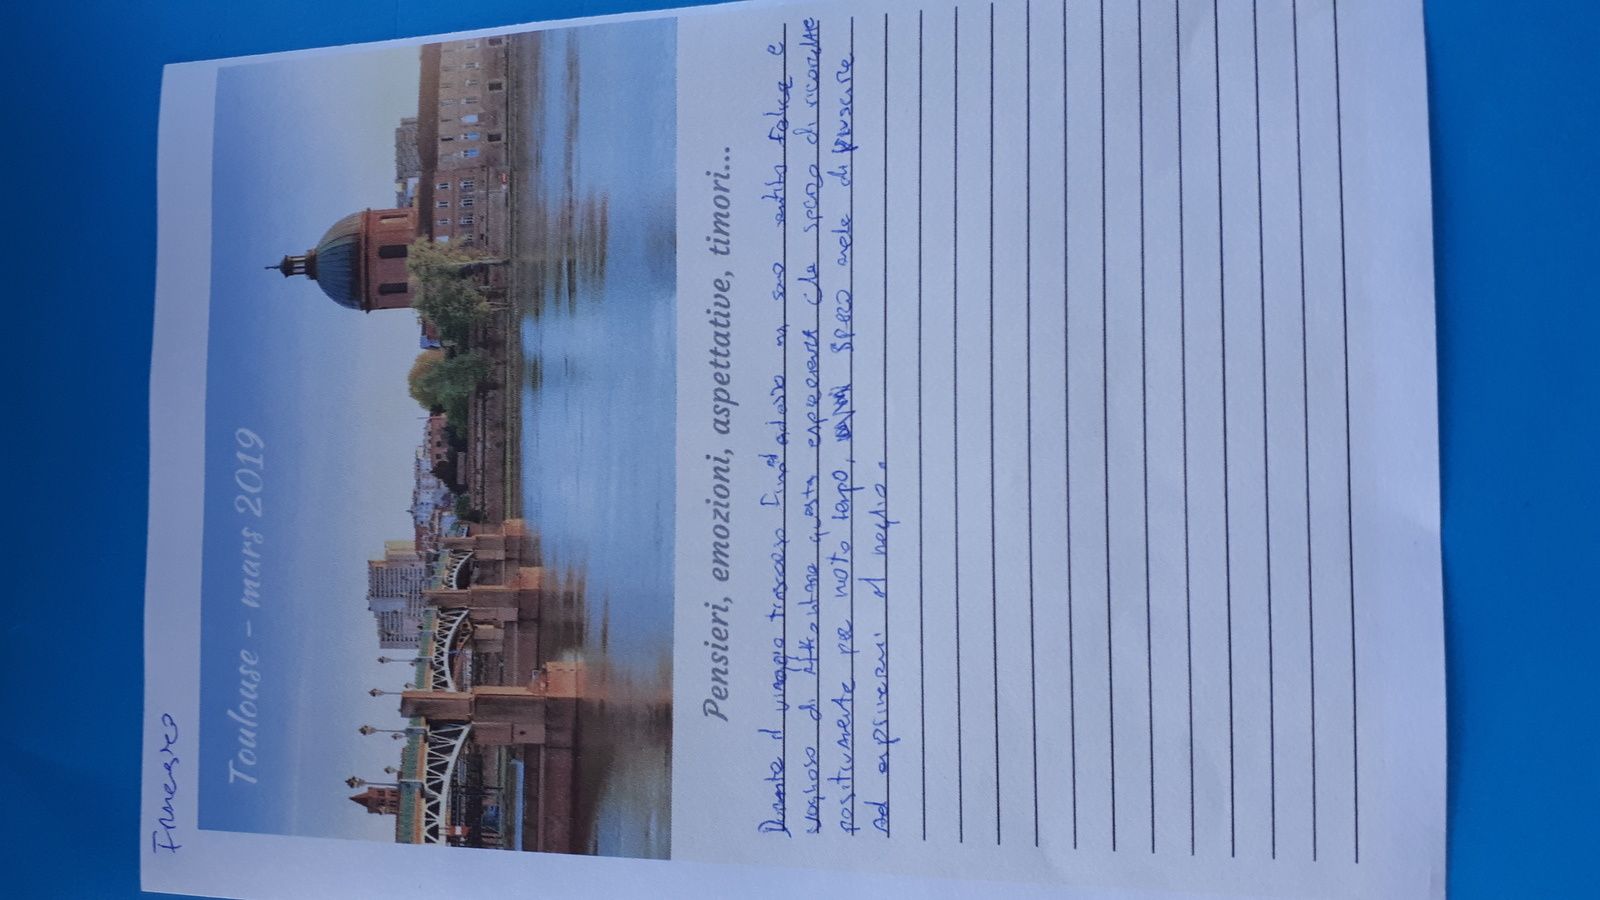 Francesco
Toulouse - mars 2019
Pensieri, emozioni, aspettative, timori...
Durante il viaggio trascorso fino ad adesso mi sono sentito felice e
voglioso di affrontare questa esperienza che spero di ricordare
positivamente per molto tempo, spero anche di riuscire
ad esprimermi al meglio.